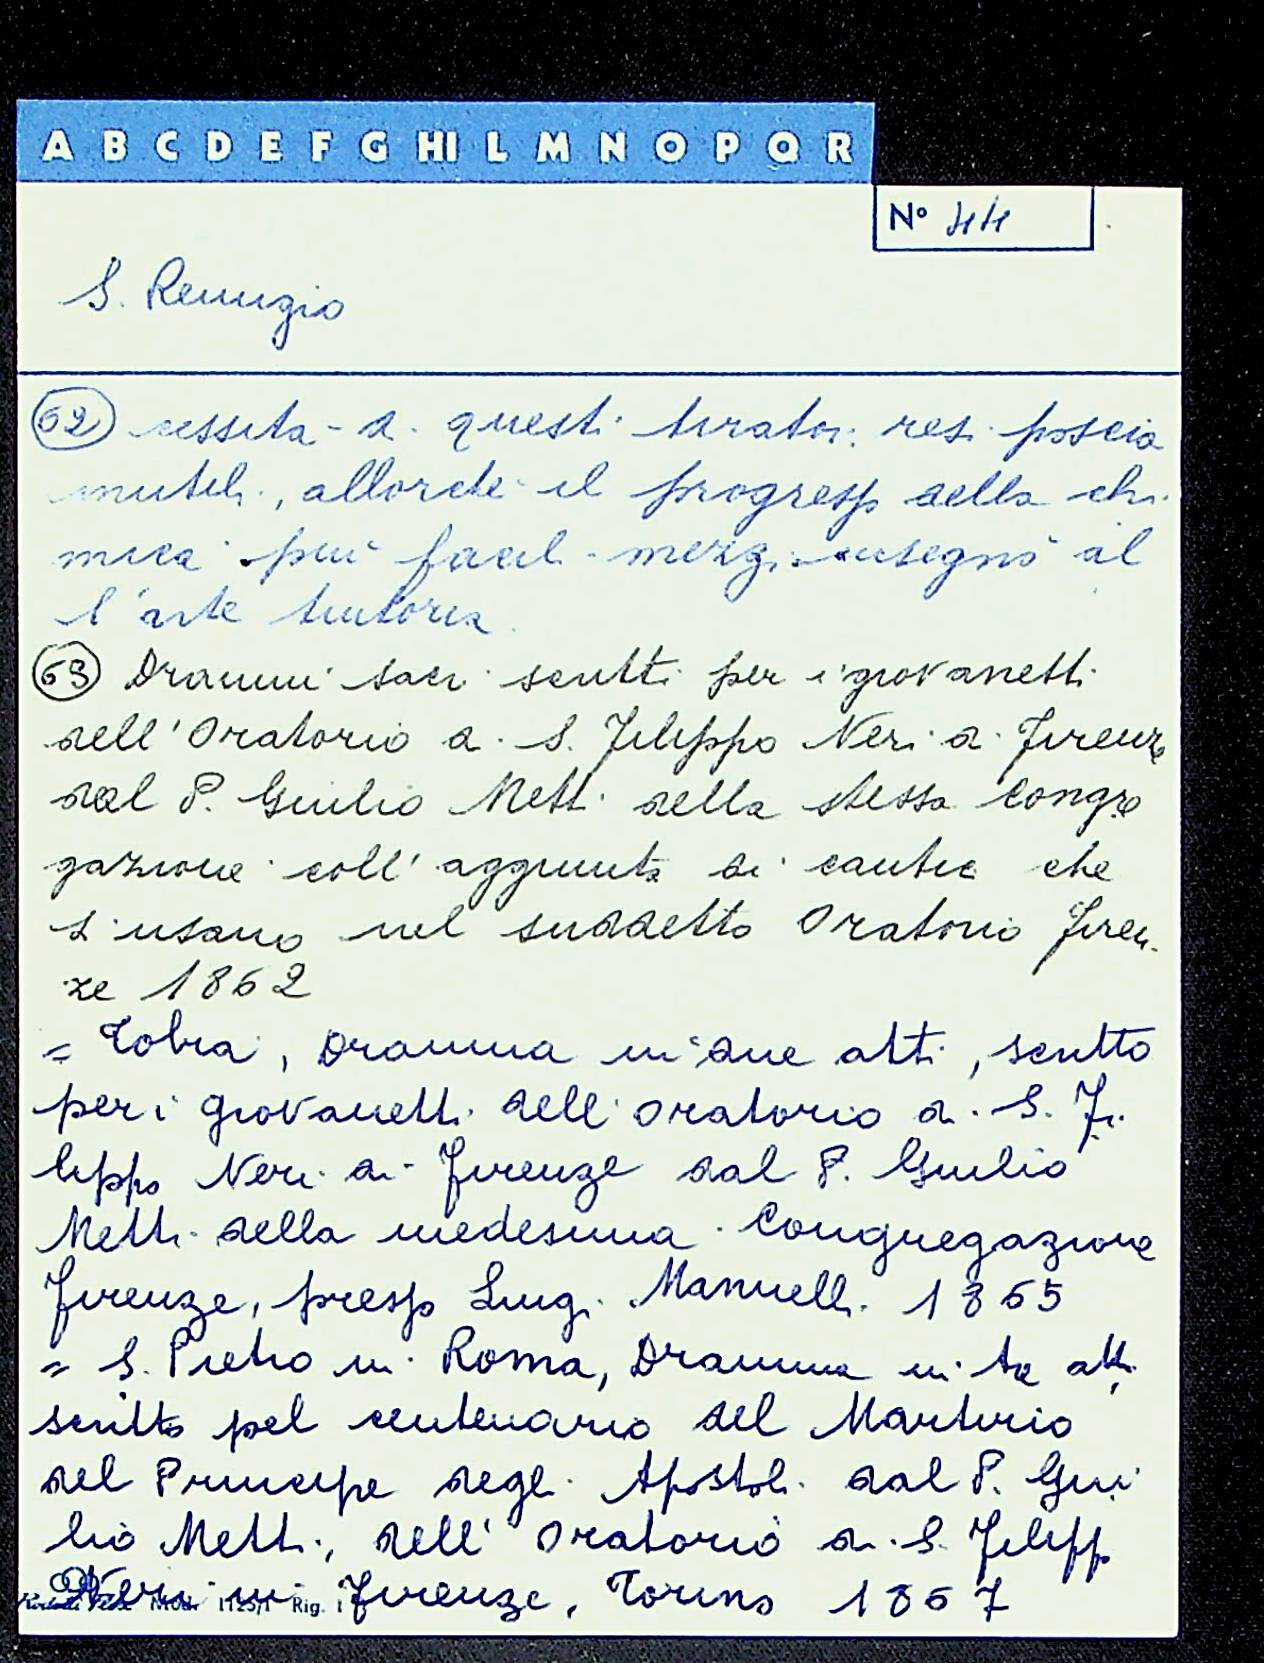 A B C D E F G HI L M N O P Q R
N° 44
S. Remigio
62 cessità di questi tiratoi resi poscia
inutili, allorché il progresso della chi-
mica più facili mezzi insegnò al
l'arte tintoria.
63 Drammi sacri scritti per i giovanetti
dell'Oratorio di S. Filippo Neri di Firenze
dal P. Giulio Metti della stessa Congre
gazione coll'aggiunta di cantici che
s'usano nel suddetto Oratorio Firen-
ze 1862
= Tobia, Dramma in due atti, scritto
per i giovanetti dell'Oratorio di S. Fi
lippo Neri di Firenze dal P. Giulio
Metti della medesima Congregazione
Firenze, presso Luigi Manuelli 1865
= S. Pietro in Roma, Dramma in tre atti,
scritto pel centenario del Martirio
del Principe degli Apostoli dal P. Giu
lio Metti, dell'Oratorio di S. Filippo
Neri in Firenze, Torino 1867
Mod. 1125/1 Rig. 1